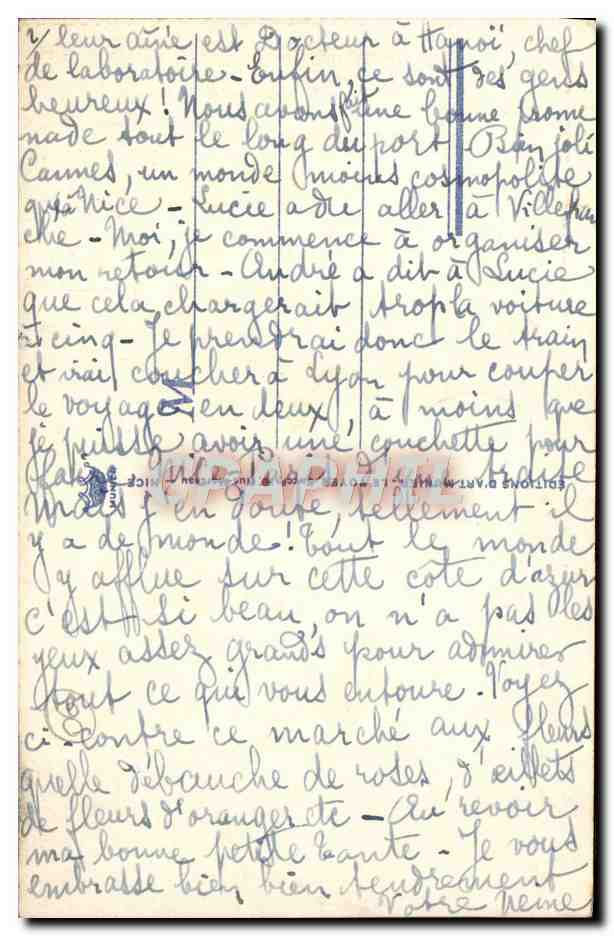 2/ leur aîné est Docteur à Hanoï, chef
de laboratoire - Enfin, ce sont des gens
heureux! Nous avons fait une bonne prome
nade tout le long du port Bien joli
Cannes, un monde moins cosmopolite
qu'à Nice - Lucie a du aller à Villefran
che - Moi, je commence à organiser
mon retour - André a dit à Lucie
que cela chargerait trop la voiture
à cinq - Je prendrai donc le train
et irai coucher à Lyon pour couper
le voyage en deux, à moins que
je puisse avoir une couchette pour
faire Nice-Paris d'une traite
Mais j'en doute, tellement il
y a de monde! Tout le monde
y afflue sur cette côte d'azur
c'est si beau, on n'a pas les
yeux assez grands pour admirer
tout ce qui vous entoure - Voyez
ci-contre ce marché aux fleurs
quelle débauche de roses, d'œillets
de fleurs d'oranger etc - Au revoir
ma bonne petite Tante - Je vous
embrasse bien bien tendrement
Votre
M
MUNIER
EDITIONS D'ART MUNIER NICE
CPAPHIL